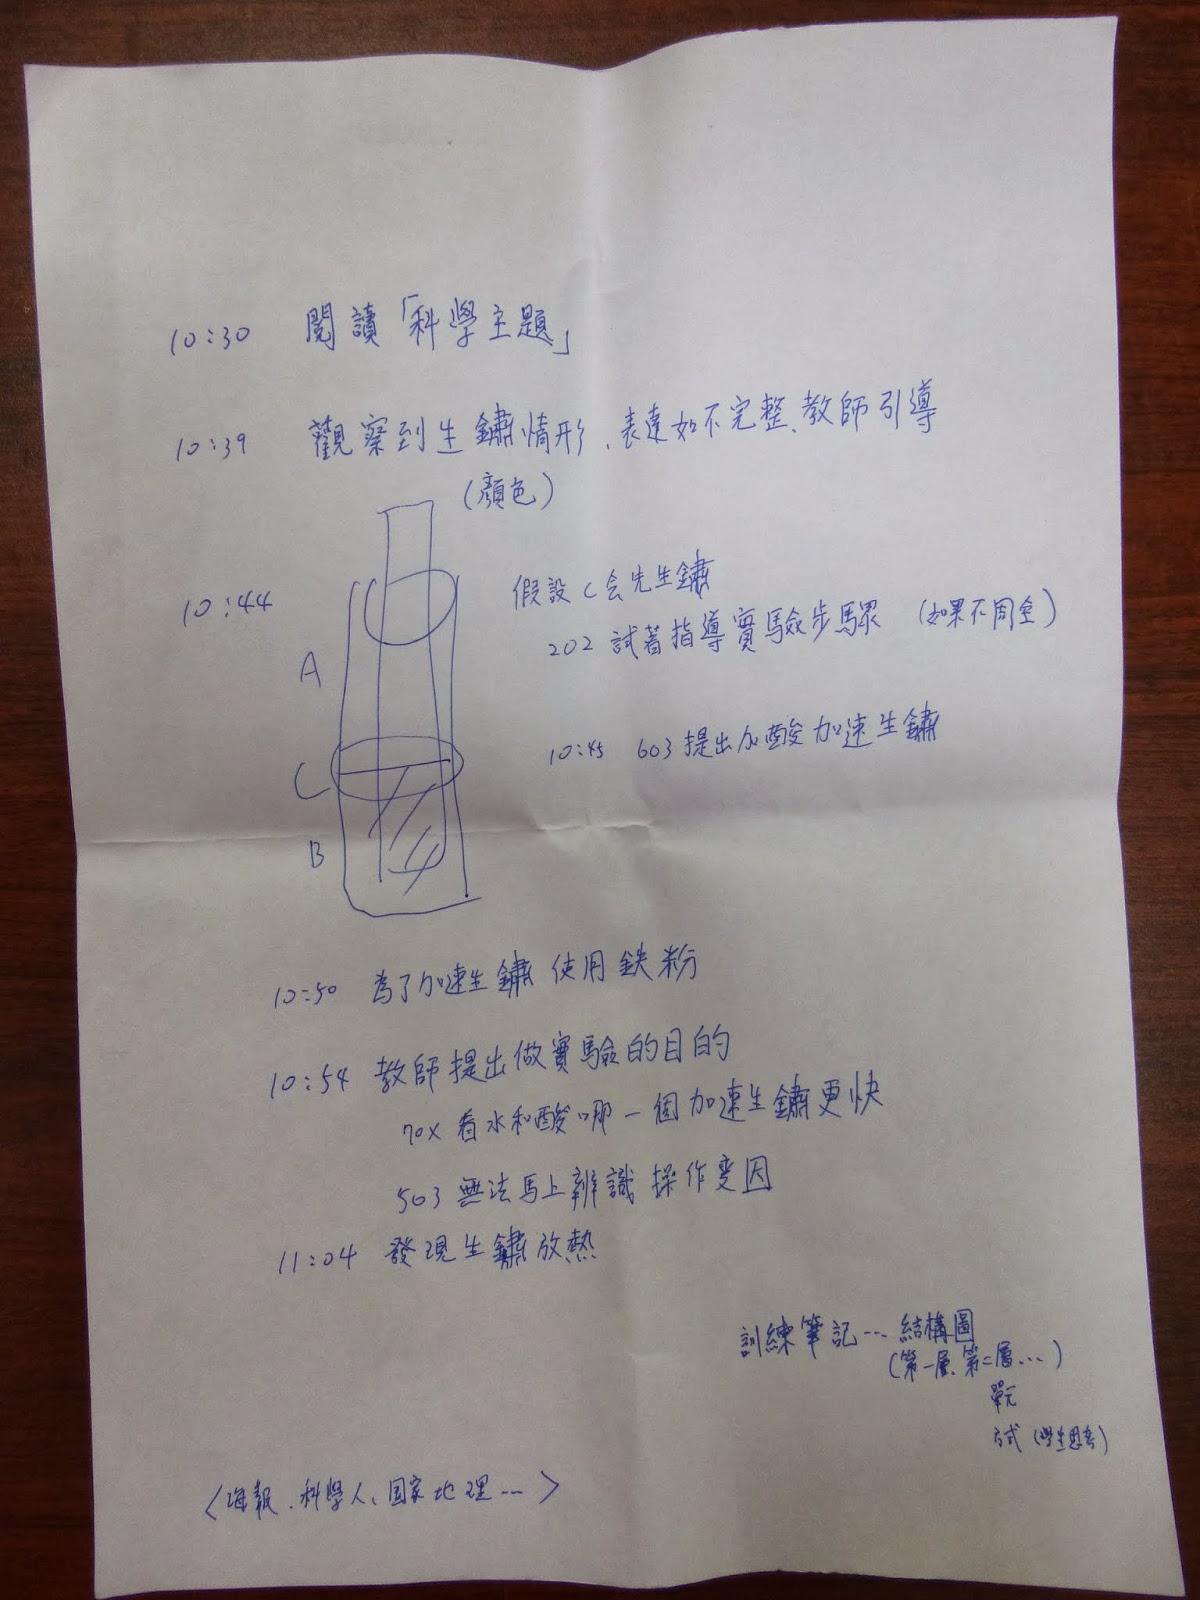 10:30 閱讀「科學主題」
10:39 觀察到生鏽情形、表達如不完整、教師引導
(顏色)
10:44
假設C会先生鏽
202 試著指導實驗步驟 (如果不周全)
A
10:45 603提出加酸加速生鏽
C
B
10:50 為了加速生鏽 使用鉄粉
10:54 教師提出做實驗的目的
70X 看水和酸哪一個加速生鏽更快
503 無法馬上辨識 操作變因
11:04 發現生鏽放熱
訓練筆記… 結構圖
(第一層、第二層…)
單元
方式 (學生思考)
〈海報、科學人、国家地理…〉